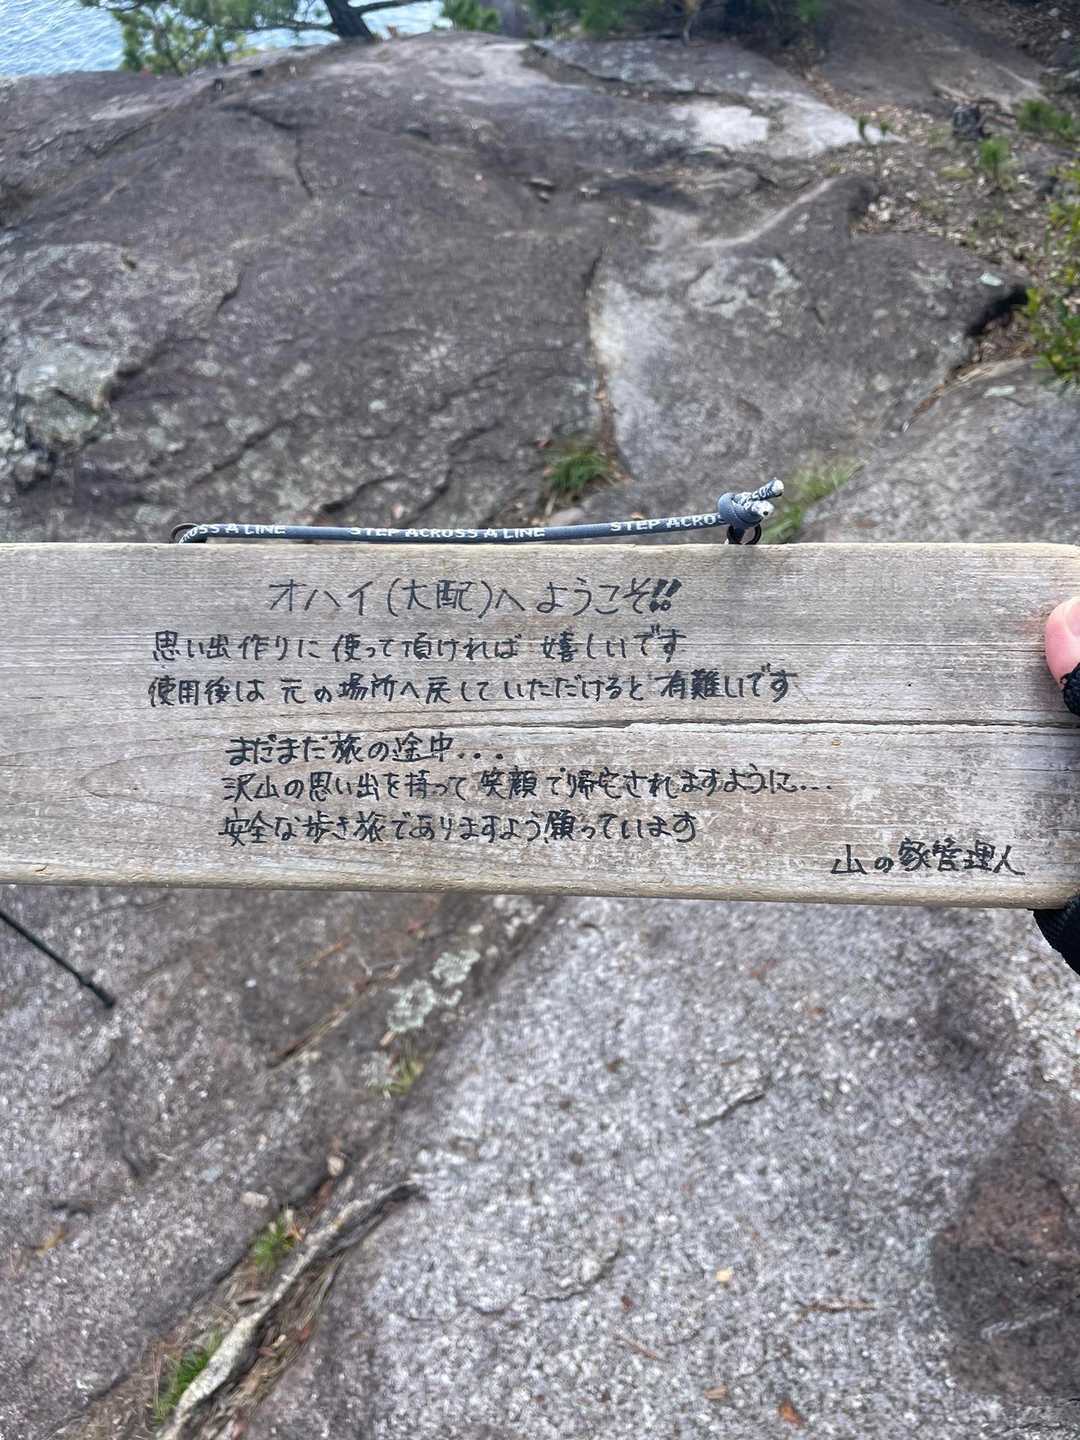 OSS A LINE STEP ACROSS A LINE STEP ACROS
オハイ(大配)へようこそ!!
思い出作りに使って頂ければ 嬉しいです
使用後は元の場所へ戻していただけると有難いです
まだまだ旅の途中...
沢山の思い出を持って笑顔で帰宅されますように...
安全な歩き旅でありますよう願っています
山の家管理人